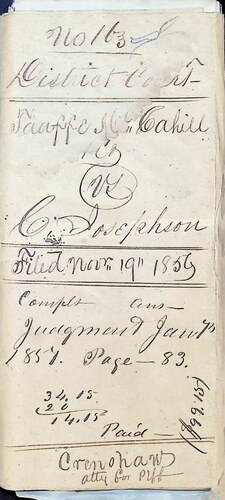 No 163
District Court
Taaffe McCahill
& Co
vs
C. Josephson
Filed Novr. 19" 1856
Complt ans
Judgment Jany
1857. Page - 83.
34.15
20
14.15
Paid -
($99.15)
Crenshaw
atty for Plff